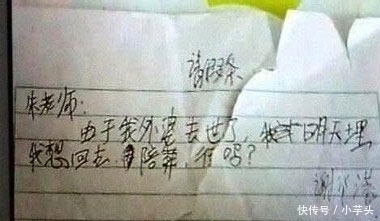 请假条
朱老师:
由于我外婆去世了,我 明天埋
我想回去 陪葬,行吗?
谢
快传号 / 小芋头